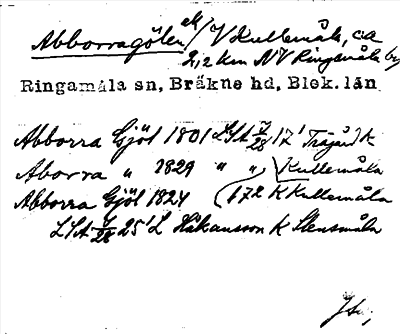 Abborragölen sk/V Kullemåla, ca
2,2 km NV Ringamåla by
Ringamåla sn, Bräkne hd, Blek. län
Abborra Gjöl 1801 LSA 17' Trägård K
Aborra " 1829 " " Kullemåla
Abborra Gjöl 1824 (172 K Kullemåla
LSA 25' L Håkansson K Stensmåla